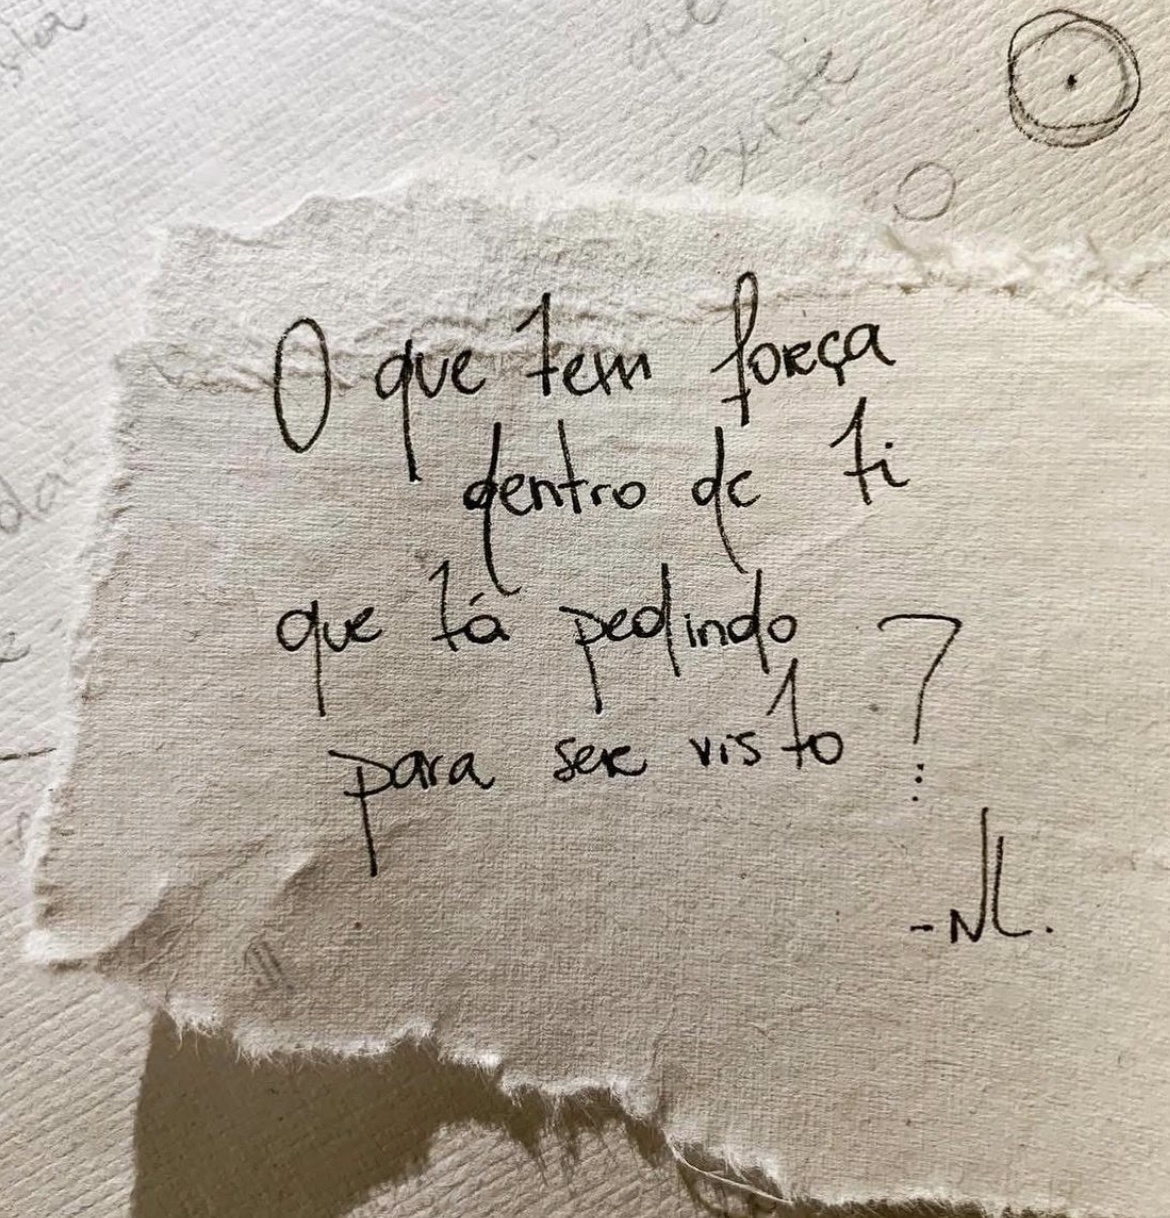 que
existe
O que tem força
dentro de ti
que tá pedindo
para ser visto?
-NL.